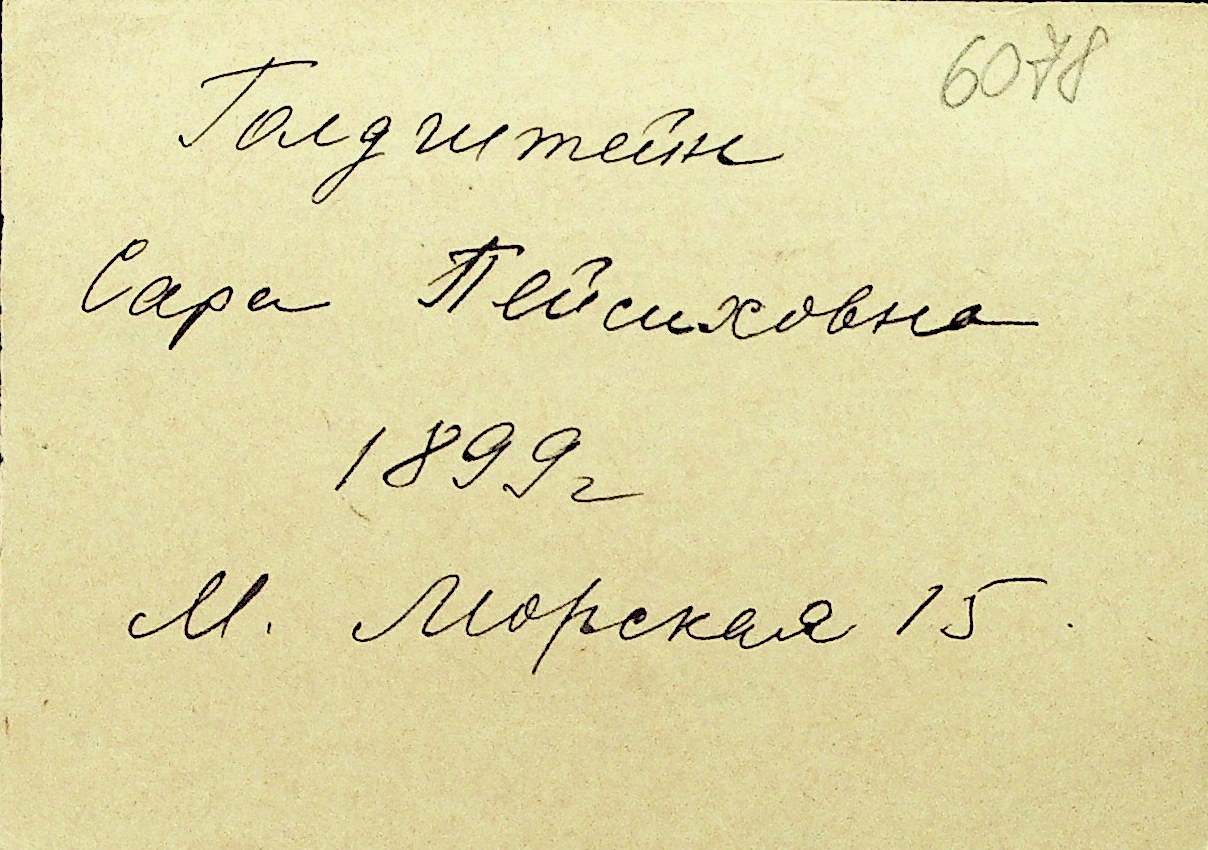 6078
Голдштейн
Сара Пейсиховна
1899г
М. Морская 15.